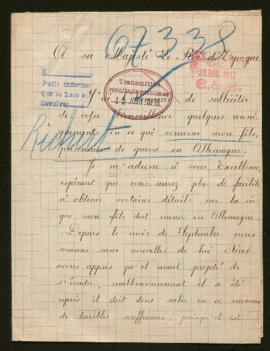 67338
A sa Majesté Le Roi d'Espagne
Pedir informes
Que se hace a
devolver
Transmitir
13
J'ai de solliciter
de votre quelques rensei
gnements en ce qui concerne mon fils,
prisonnier de guerre en Allemagne.
Je m'adresse à vous, Excellence,
espérant que vous aurez plus de facilité
à obtenir certains détails sur la vie
que mon fils doit mener en Allemagne.
Depuis le mois de Septembre nous
sommes sans nouvelles de lui. Nous
avons appris qu'il avait projeté de
s'évader, malheureusement il a été
repris il doit donc subir en ce moment
de terribles souffrances, puisque il est